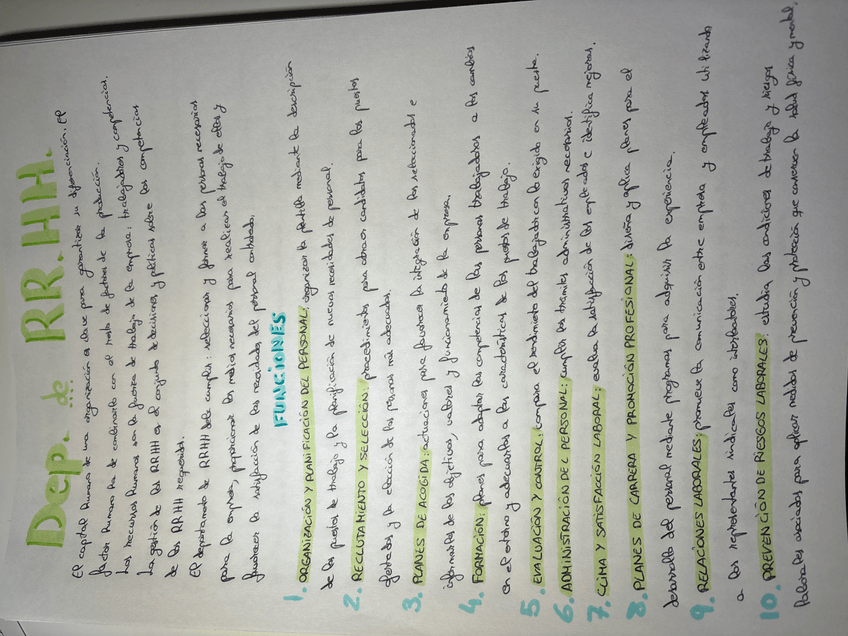 Dep. de RR.HH.
El capital humano de una organización es clave para garantizar su diferenciación. El
factor humano ha de combinarse con el resto de factores de la producción.
Los recursos humanos son la fuerza de trabajo de la empresa: trabajadores y competencias.
La gestión de los RRHH es el conjunto de decisiones y políticas sobre las competencias
de los RRHH requeridos.
El departamento de RRHH debe cumplir: seleccionar y formar a las personas necesarias
para la empresa, proporcionar los medios necesarios para realizar el trabajo de ellos y
favorecer la satisfacción de las necesidades del personal contratado.
FUNCIONES
1. ORGANIZACIÓN Y PLANIFICACIÓN DEL PERSONAL: organizar la plantilla mediante la descripción
de los puestos de trabajo y la planificación de nuevas necesidades de personal.
2. RECLUTAMIENTO Y SELECCIÓN: procedimientos para atraer candidatos para los puestos
ofertados y la elección de las personas más adecuadas.
3. PLANES DE ACOGIDA: actuaciones para favorecer la integración de los seleccionados e
informarles de los objetivos, valores y funcionamiento de la empresa.
4. FORMACIÓN: planes para adaptar las competencias de las personas trabajadoras a los cambios
en el entorno y adecuarlos a las características de los puestos de trabajo.
5. EVALUACIÓN Y CONTROL: compara el rendimiento del trabajador con lo exigido en su puesto.
6. ADMINISTRACIÓN DEL PERSONAL: cumplir los trámites administrativos necesarios.
7. CLIMA Y SATISFACCIÓN LABORAL: evalua la satisfacción de los empleados e identifica mejoras.
8. PLANES DE CARRERA Y PROMOCIÓN PROFESIONAL: diseña y aplica planes para el
desarrollo del personal mediante programas para adquirir la experiencia.
9. RELACIONES LABORALES: promueve la comunicación entre empresa y empleados utilizando
a los representantes sindicales como interlocutores.
10. PREVENCIÓN DE RIESGOS LABORALES: estudia las condiciones de trabajo y riesgos
laborales asociados para aplicar medidas de prevención y protección que conserven la salud física y mental.